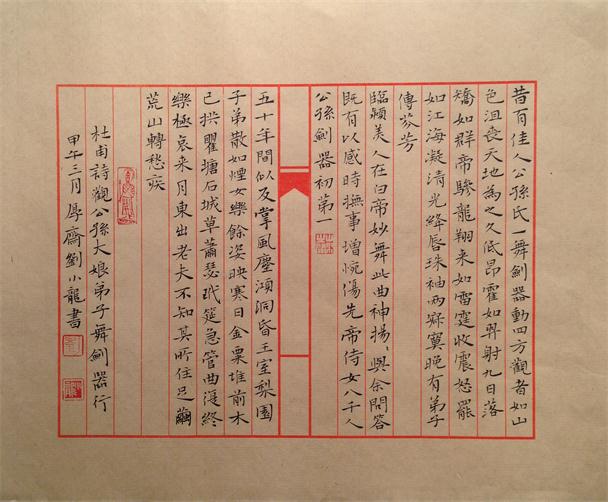 昔有佳人公孫氏一舞劍器動四方觀者如山
色沮喪天地為之久低昂霍如羿射九日落
矯如群帝驂龍翔来如雷霆收震怒罷
如江海凝清光絳唇珠袖兩寂寞晚有弟子
傳芬芳
臨潁美人在白帝妙舞此曲神揚〻與余問答
既有以感時撫事增惋傷先帝侍女八千人
公孫劍器初第一
五十年間似反掌風塵澒洞昏王室梨園
子弟散如煙女樂餘姿映寒日金粟堆前木
已拱瞿塘石城草蕭瑟玳筵急管曲復終
樂極哀来月東出老夫不知其所往足繭
荒山轉愁疾
杜甫詩觀公孫大娘弟子舞劍器行
甲午三月厚齋劉小龍書